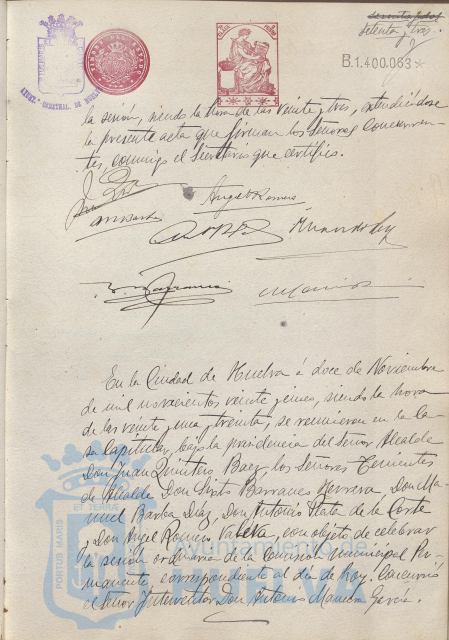 sesenta y dos
setenta y tres
B.1.400.063*
la sesión, siendo la hora de las veinte y tres, extendiéndose
la presente acta que firman los Señores Concurren-
tes, conmigo el Secretario que certifico.
Angel Romero
En la Ciudad de Huelva á doce de Noviembre
de mil novecientos veinte y cinco, siendo la hora
de las veinte y una y treinta, se reunieron en la Ca-
sa Capitular, bajo la presidencia del Señor Alcalde
Don Juan Quintero Baez los Señores Tenientes
de Alcalde Don Sixto Barranco Herrera, Don Ma-
nuel Barba Díaz, Don Antonio Plata de la Corte
y Don Angel Romero Valera, con objeto de celebrar
la sesión ordinaria de la Comisión municipal Per-
manente, correspondiente al día de hoy. Concurrió
el Señor Interventor Don Antonio Mancera García.
PORTUS MARIS
ET TERRÆ
Ayuntamiento de
HUELVA